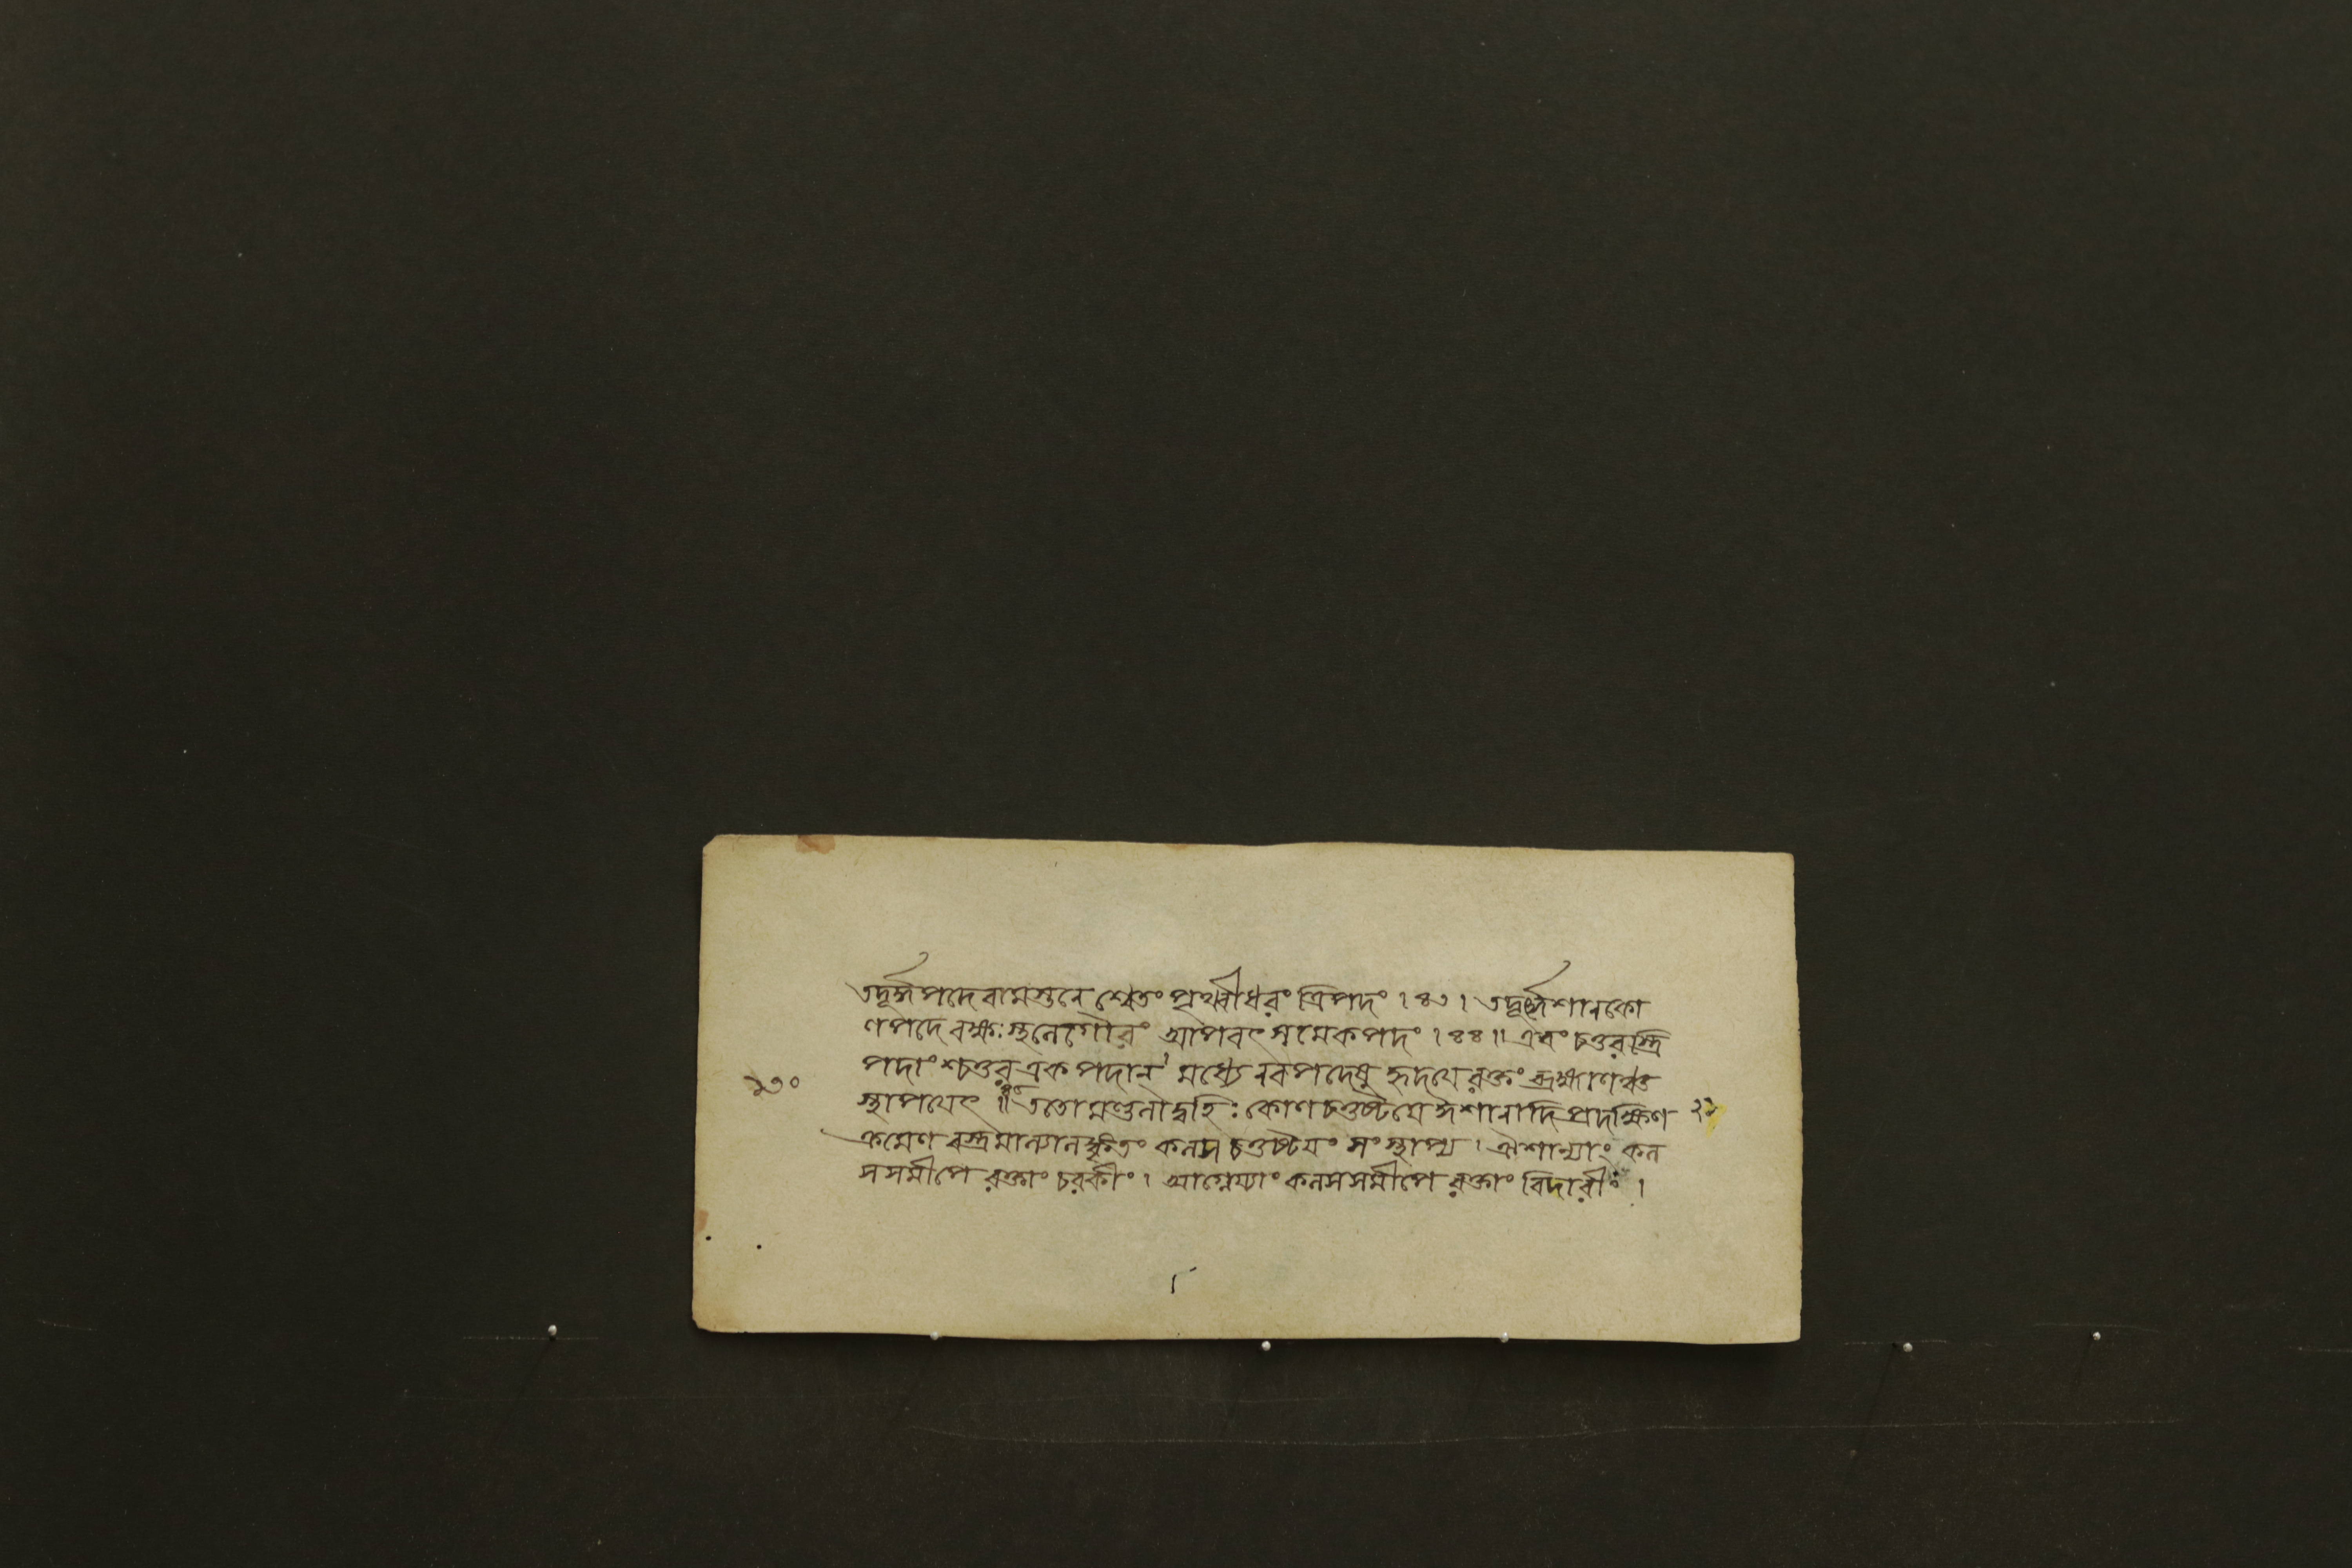 তদূর্দ্ধপদে বামস্তনে শ্বেতং পৃথ্বীধরং ত্রিপদং । ৪৩ । তদূর্দ্ধেশানকো
ণপদে বক্ষঃস্থলে গৌরং আপবৎসমেকপদং । ৪৪ ॥ এবং চতুরস্ত্রি
পদাংশ্চতুর একপদান্ মধ্যে নবপদেষু হৃদয়ে রক্তং ব্রহ্মাণঞ্চ
স্থাপয়েৎ ॥ ততো মণ্ডলাদ্বহিঃ কোণচতুষ্টয়ে ঈশানাদি প্রদক্ষিণ
ক্রমেণ বস্ত্রমাল্যালঙ্কৃতং কলস চতুষ্টয়ং সংস্থাপ্য । ঐশান্যাং কল
সসমীপে রক্তাং চরকীং । আগ্নেয্যাং কলসসমীপে রক্তাং বিদারীং ।